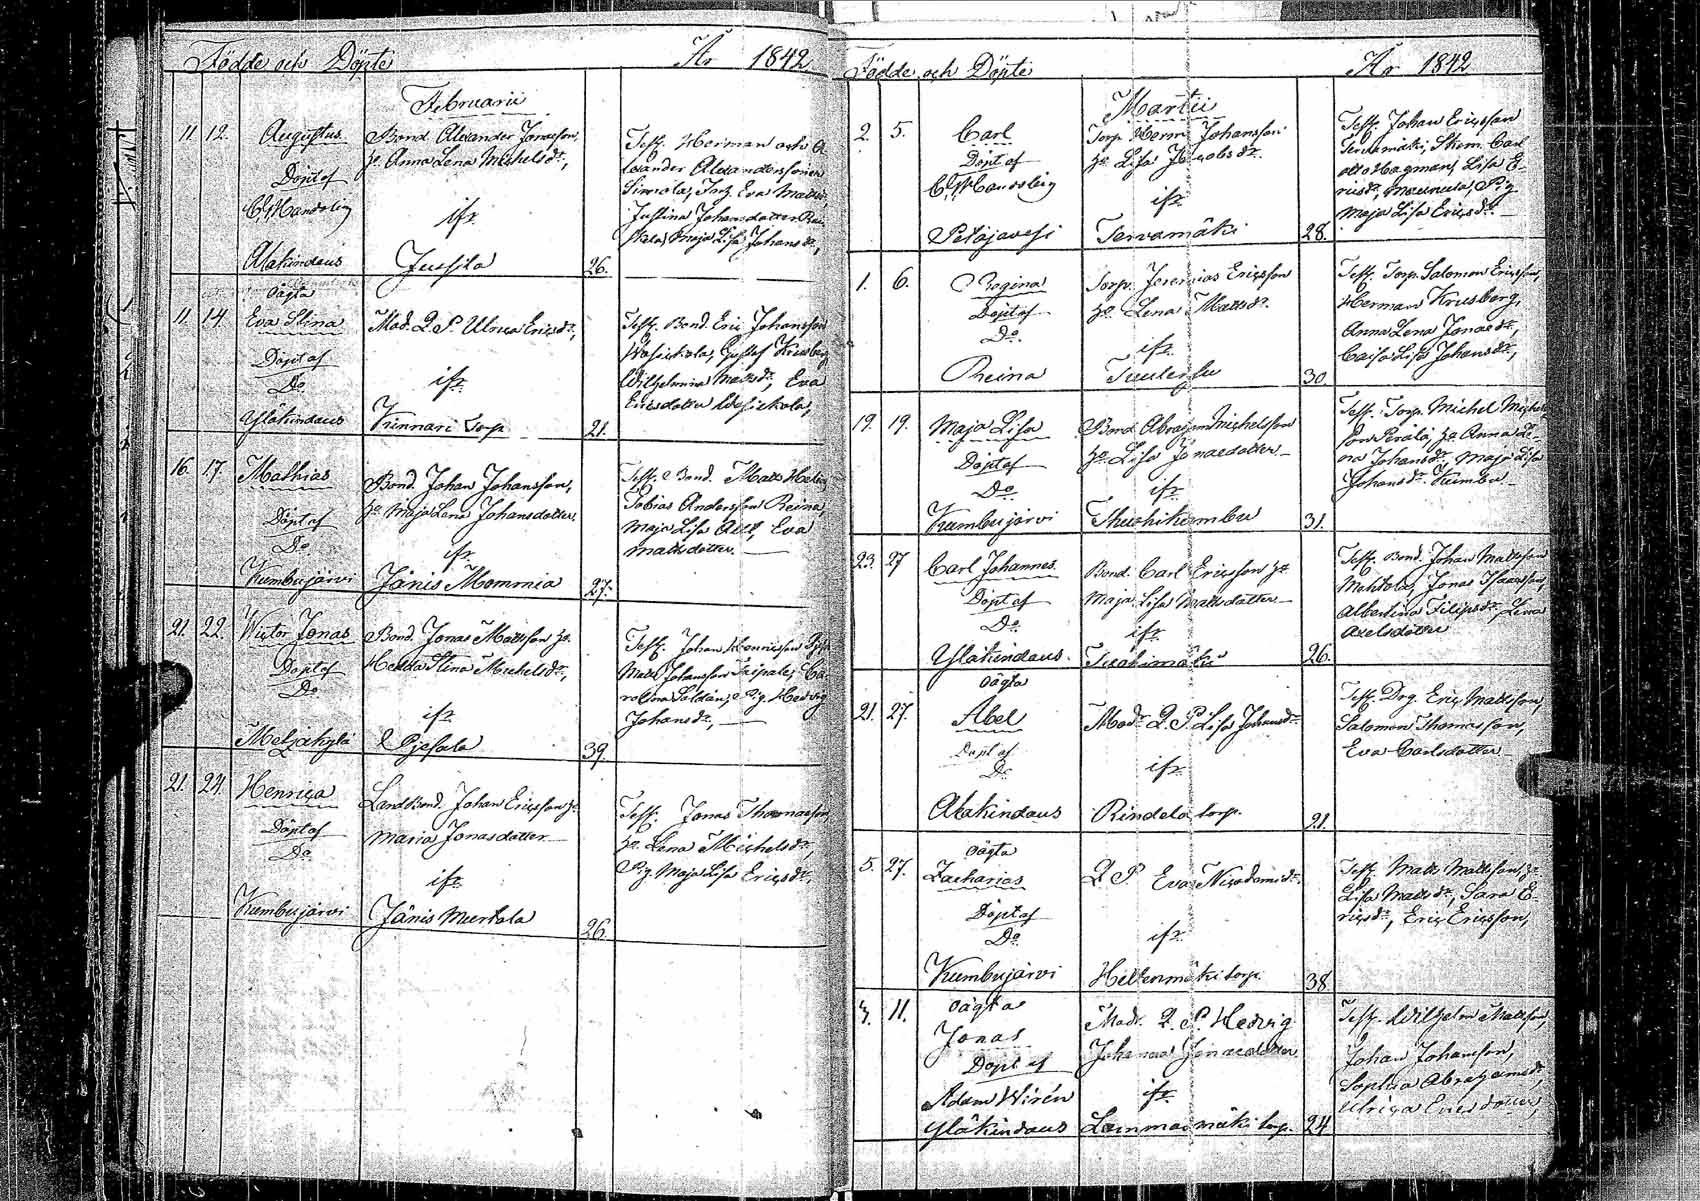 Födde och Döpte År 1842
Februarii
11. 12. Augustus
Döpt af
Alakindaus
Bond. Alexander Jonasson,
h. Anna Lena Michelsdr,
ifr.
Jussila
26.
Test. Herman och A
lexander Alexanderssöner
Simola, Eva Matts
Justina Johansdotter
Maja Lisa Johansdr,
Oägta
11. 14. Eva Stina
Döpt af
Do
Yläkindaus
Mod. Q. P. Ulrica Ericsdr,
ifr.
Kinnari Torp
21.
Test. Bond. Eric Johansson
Gustaf Krusberg
Wilhelmina Mattsdr, Eva
Ericsdotter
16. 17. Mathias
Döpt af
Do
Kumbujärvi
Bond. Johan Johansson,
h. Maja Lena Johansdotter
ifr.
Jänis Mommia
27.
Test. Bond. Matts
Tobias Andersson Reina,
Maja Lisa Eva
Mattsdotter.
21. 22. Wictor Jonas
Döpt af
Do
Metzäkylä
Bond. Jonas Mattsson h.
Hedda Stina Michelsdr,
ifr.
39.
Test. Johan Henricsson
Matts Johansson Taipale, Ca
rolina Pig. Hedvig
Johansdr,
21. 24. Henrica
Döpt af
Do
Kumbujärvi
Landbond. Johan Ericsson h.
Maria Jonasdotter
ifr.
Jänis Murtola
26.
Test. Jonas Thomasson
h. Lena Michelsdr,
Pig. Maja Lisa Ericsdr,
Födde och Döpte År 1842
Martii
2. 5. Carl
Döpt af
Petäjavesi
Torp. Herm. Johansson
h. Lisa Jacobsdr.
ifr.
Tervamäki
28.
Test. Johan Ericsson
Tervamäki, Carl
Otto Hagman, Lisa E-
ricsdr, Pig.
Maja Lisa Ericsdr.
1. 6. Regina
Döpt af
Do.
Reina
Torp. Jeremias Ericsson
h. Lena Mattsdr.
ifr.
30
Test. Torp. Salomon Ericsson,
Herman Krusberg,
Anna Lena Jonaedr,
Caisa Lisa Johansdr,
19. 19. Maja Lisa
Döpt af
Do
Kumbujärvi
Bond. Abraham Michelsson
h. Lisa Jonaedotter
ifr.
31.
Test. Torp. Michel Michels
son Perälä, h. Anna Le-
na Johansdr. Maja Lisa
Johansdr. Kumbu
23. 27 Carl Johannes
Döpt af
Do
Yläkindaus.
Bond. Carl Ericsson h.
Maja Lisa Mattsdotter
ifr.
26.
Test. Bond. Johan Mattsson
Jonas Isaacsson,
Albertina Filipsdr, Lena
Axelsdotter
Oägta
21. 27. Abel
Döpt af
Do
Alakindaus
Modr. Q. P. Lisa Johansdr.
ifr.
Rindela torp.
21.
Test. Drg. Eric Mattsson,
Salomon Thomasson,
Eva Carlsdotter
Oägta
5. 27. Zacharias
Döpt af
Do
Kumbujärvi
Q. P. Eva Nicodemidr.
ifr.
torp.
38.
Test. Matts Mattsson, h.
Lisa Mattsdr, Sara E-
ricsdr, Eric Ericsson,
Oägta
11. Jonas
Döpt af
Adam Wirén
Yläkindaus
Modr. Q. P. Hedvig
Johanna Jonaedotter
ifr.
Lammasmäki torp.
24
Test. Wilhelm Mattsson,
Johan Johansson,
Sophia Abrahamsdr,
Ulrica Ericsdotter,